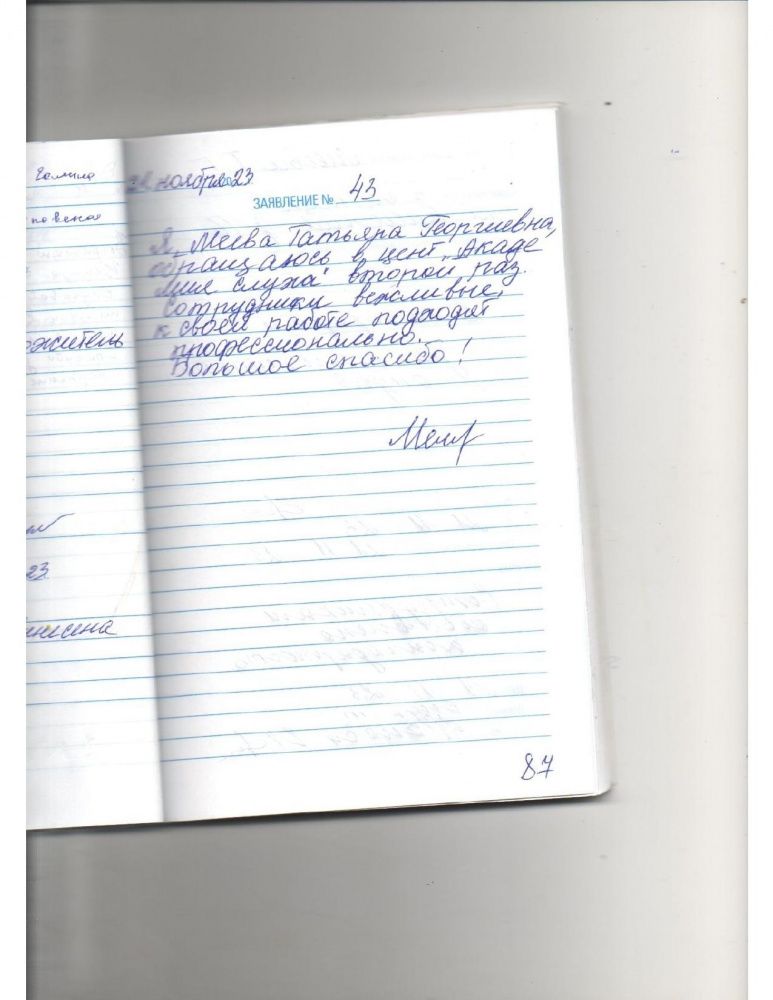 Галина
ноября 23
ЗАЯВЛЕНИЕ № 43
Я, Меева Татьяна Георгиевна,
обращаюсь в цент „Акаде
мия слуха" второй раз.
Сотрудники вежливые,
к своей работе подходят
профессионально.
Большое спасибо!
23
87